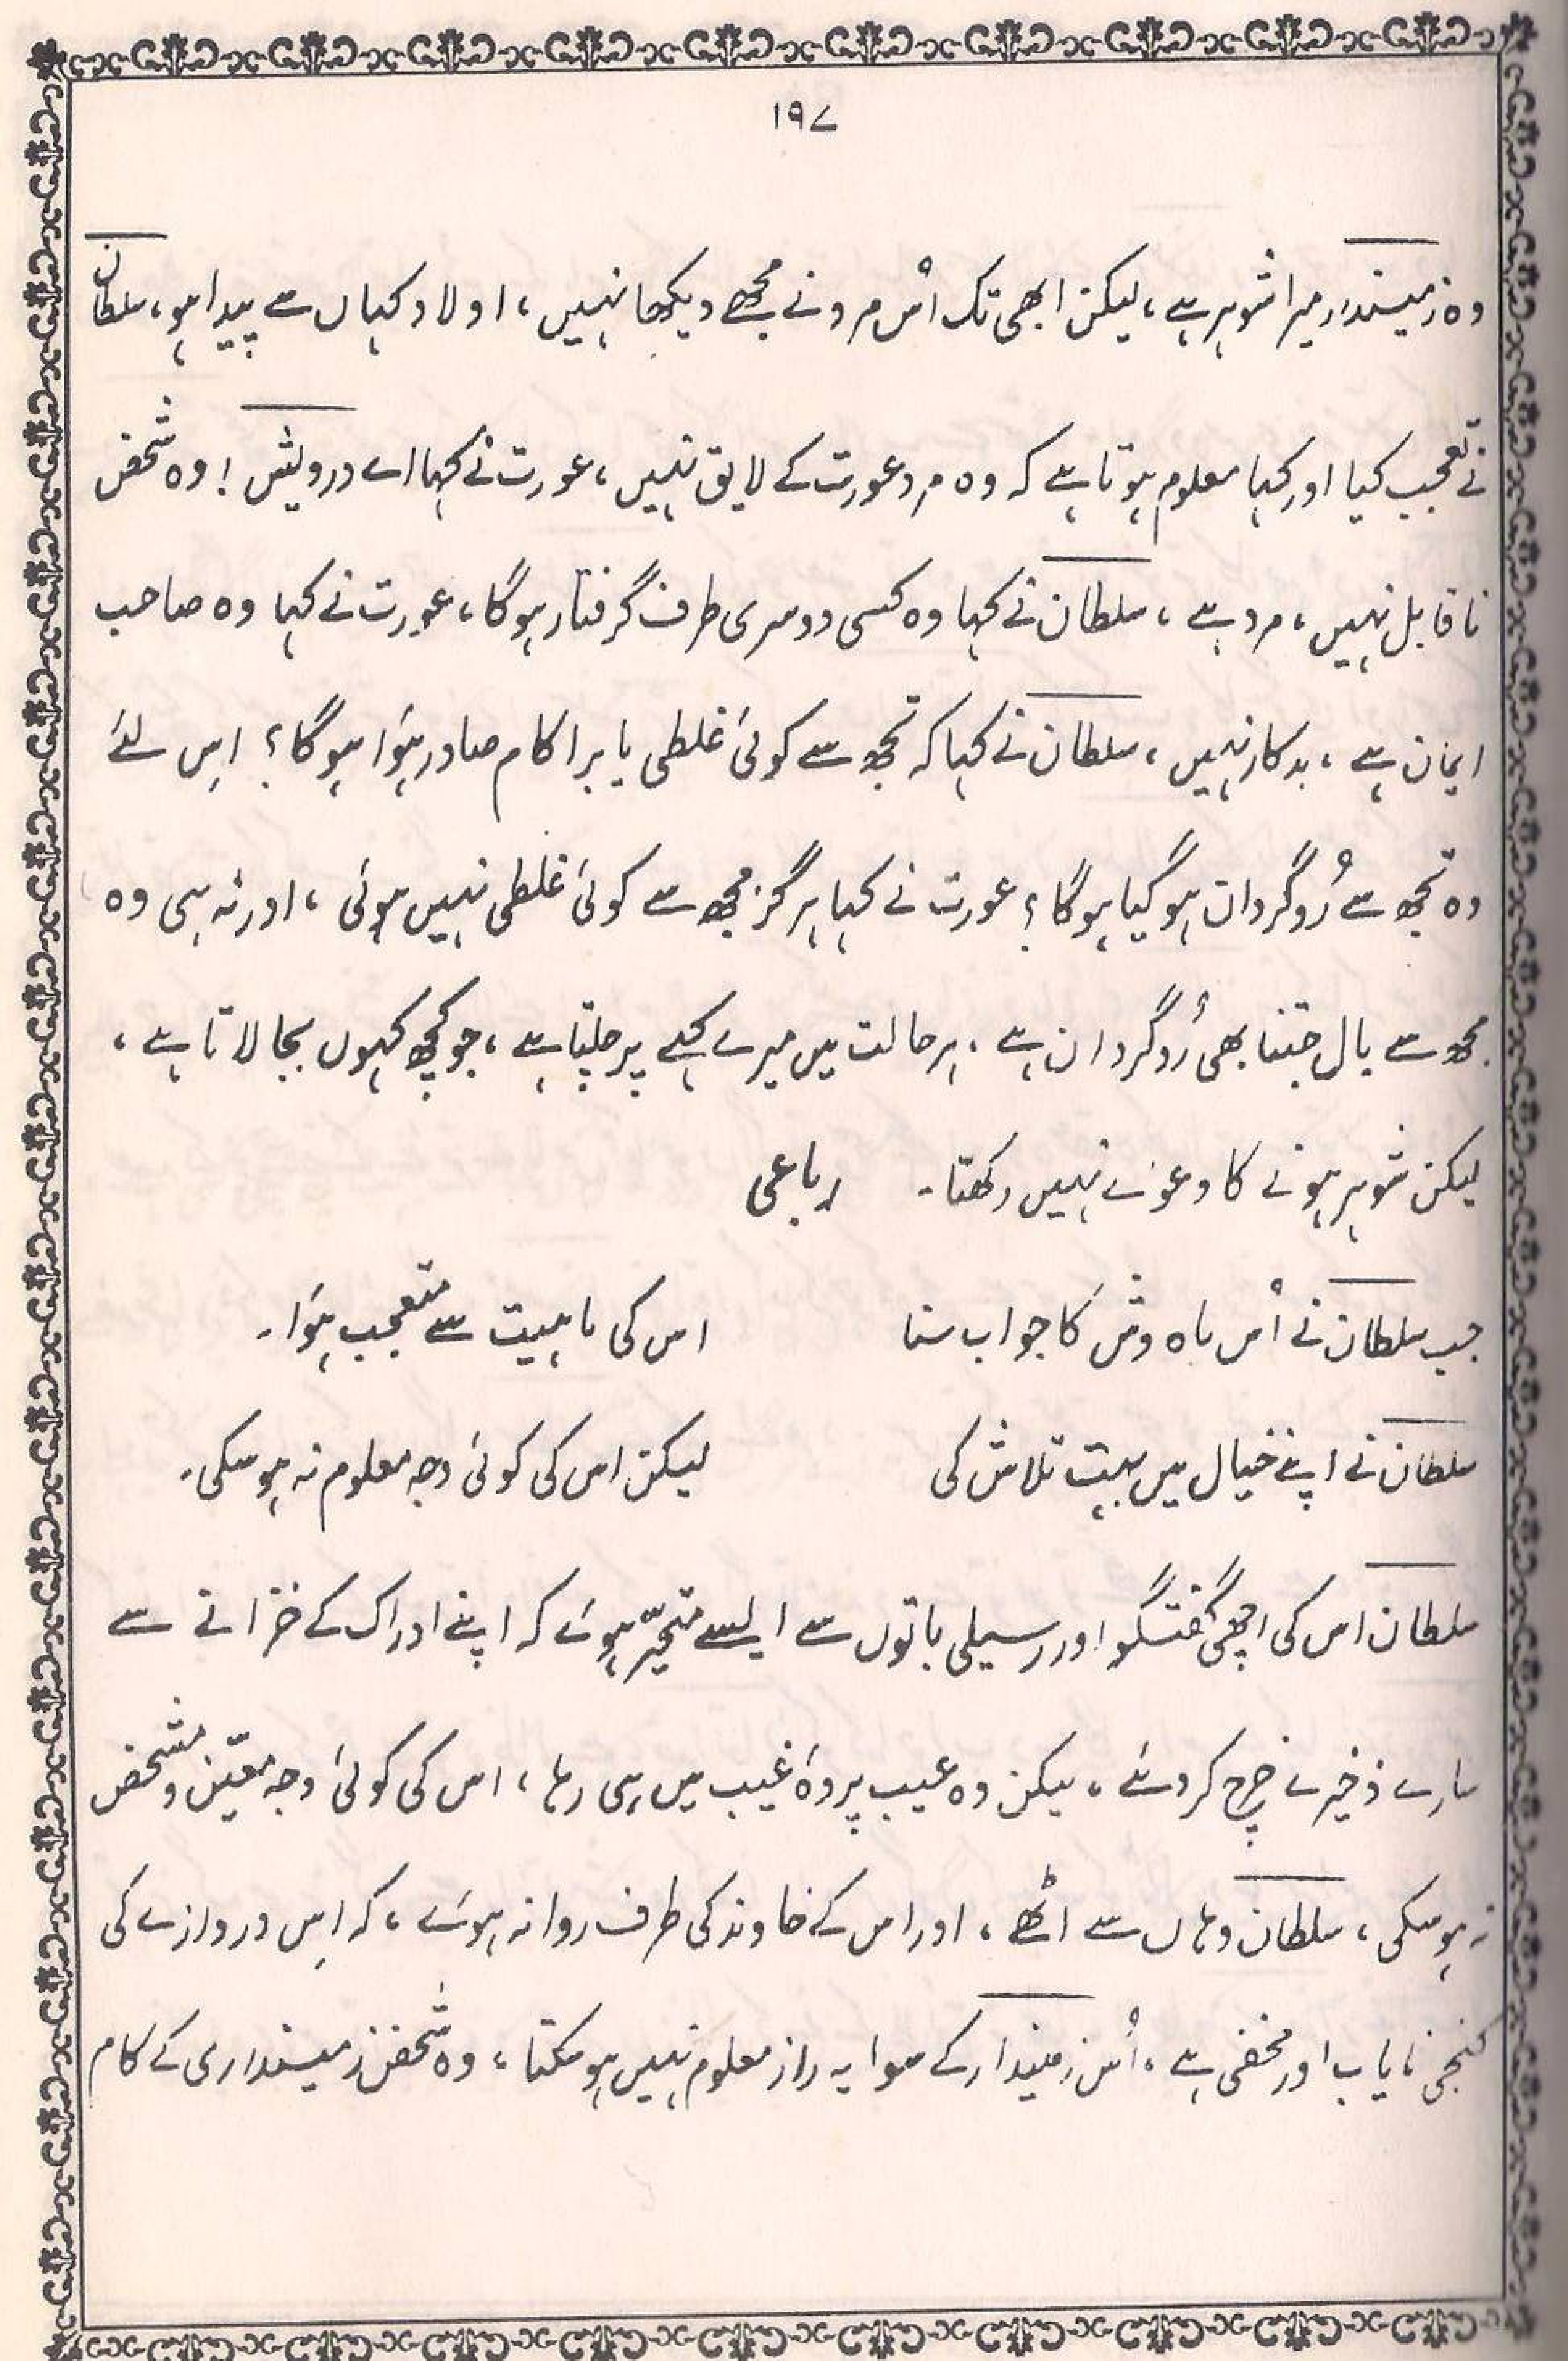 ۱۹۷
وہ زمیندار میرا شوہر ہے، لیکن ابھی تک اُس مرد نے مجھے دیکھا نہیں، اولاد کہاں سے پیدا ہو، سلطان
نے تعجب کیا اور کہا معلوم ہوتا ہے کہ وہ مرد عورت کے لایق نہیں، عورت نے کہا اے درویش! وہ شخص
ناقابل نہیں، مرد ہے، سلطان نے کہا وہ کسی دوسری طرف گرفتار ہوگا، عورت نے کہا وہ صاحب
ایمان ہے، بدکار نہیں، سلطان نے کہا کہ تجھ سے کوئی غلطی یا برا کام صادر ہؤا ہوگا؟ اِس لئے
وہ تجھ سے رُوگردان ہوگیا ہوگا؟ عورت نے کہا ہرگز مجھ سے کوئی غلطی نہیں ہوئی، اور نہ ہی وہ
مجھ سے بال جتنا بھی رُوگردان ہے، ہر حالت میں میرے کہے پر چلتا ہے، جو کچھ کہوں بجا لاتا ہے،
لیکن شوہر ہونے کا دعوٰے نہیں رکھتا۔ رباعی
جب سلطان نے اُس ماہ وش کا جواب سنا اس کی ماہیت سے متعجب ہؤا۔
سلطان نے اپنے خیال میں بہت تلاش کی لیکن اس کی کوئی وجہ معلوم نہ ہوسکی۔
سلطان اس کی اچھی گفتگو اور رسیلی باتوں سے ایسے متحیّر ہوئے کہ اپنے ادراک کے خزانے سے
سارے ذخیرے خرچ کردئے، لیکن وہ عیب پردۂ غیب میں ہی رہا، اس کی کوئی وجہ معیّن و مشخص
نہ ہوسکی، سلطان وہاں سے اٹھے، اور اس کے خاوند کی طرف روانہ ہوئے، کہ اِس دروازے کی
کنجی نایاب اور مخفی ہے، اُس زمیندار کے سوا یہ راز معلوم نہیں ہوسکتا، وہ شخص زمینداری کے کام